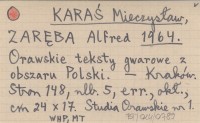 KARAŚ Mieczysław,
ZARĘBA Alfred 1964.
Orawskie teksty gwarowe z
obszaru Polski. — Kraków.
Stron 148, nlb. 5, err., okł.,
cm 24 x 17. Studia Orawskie nr 1.
WHP, MT